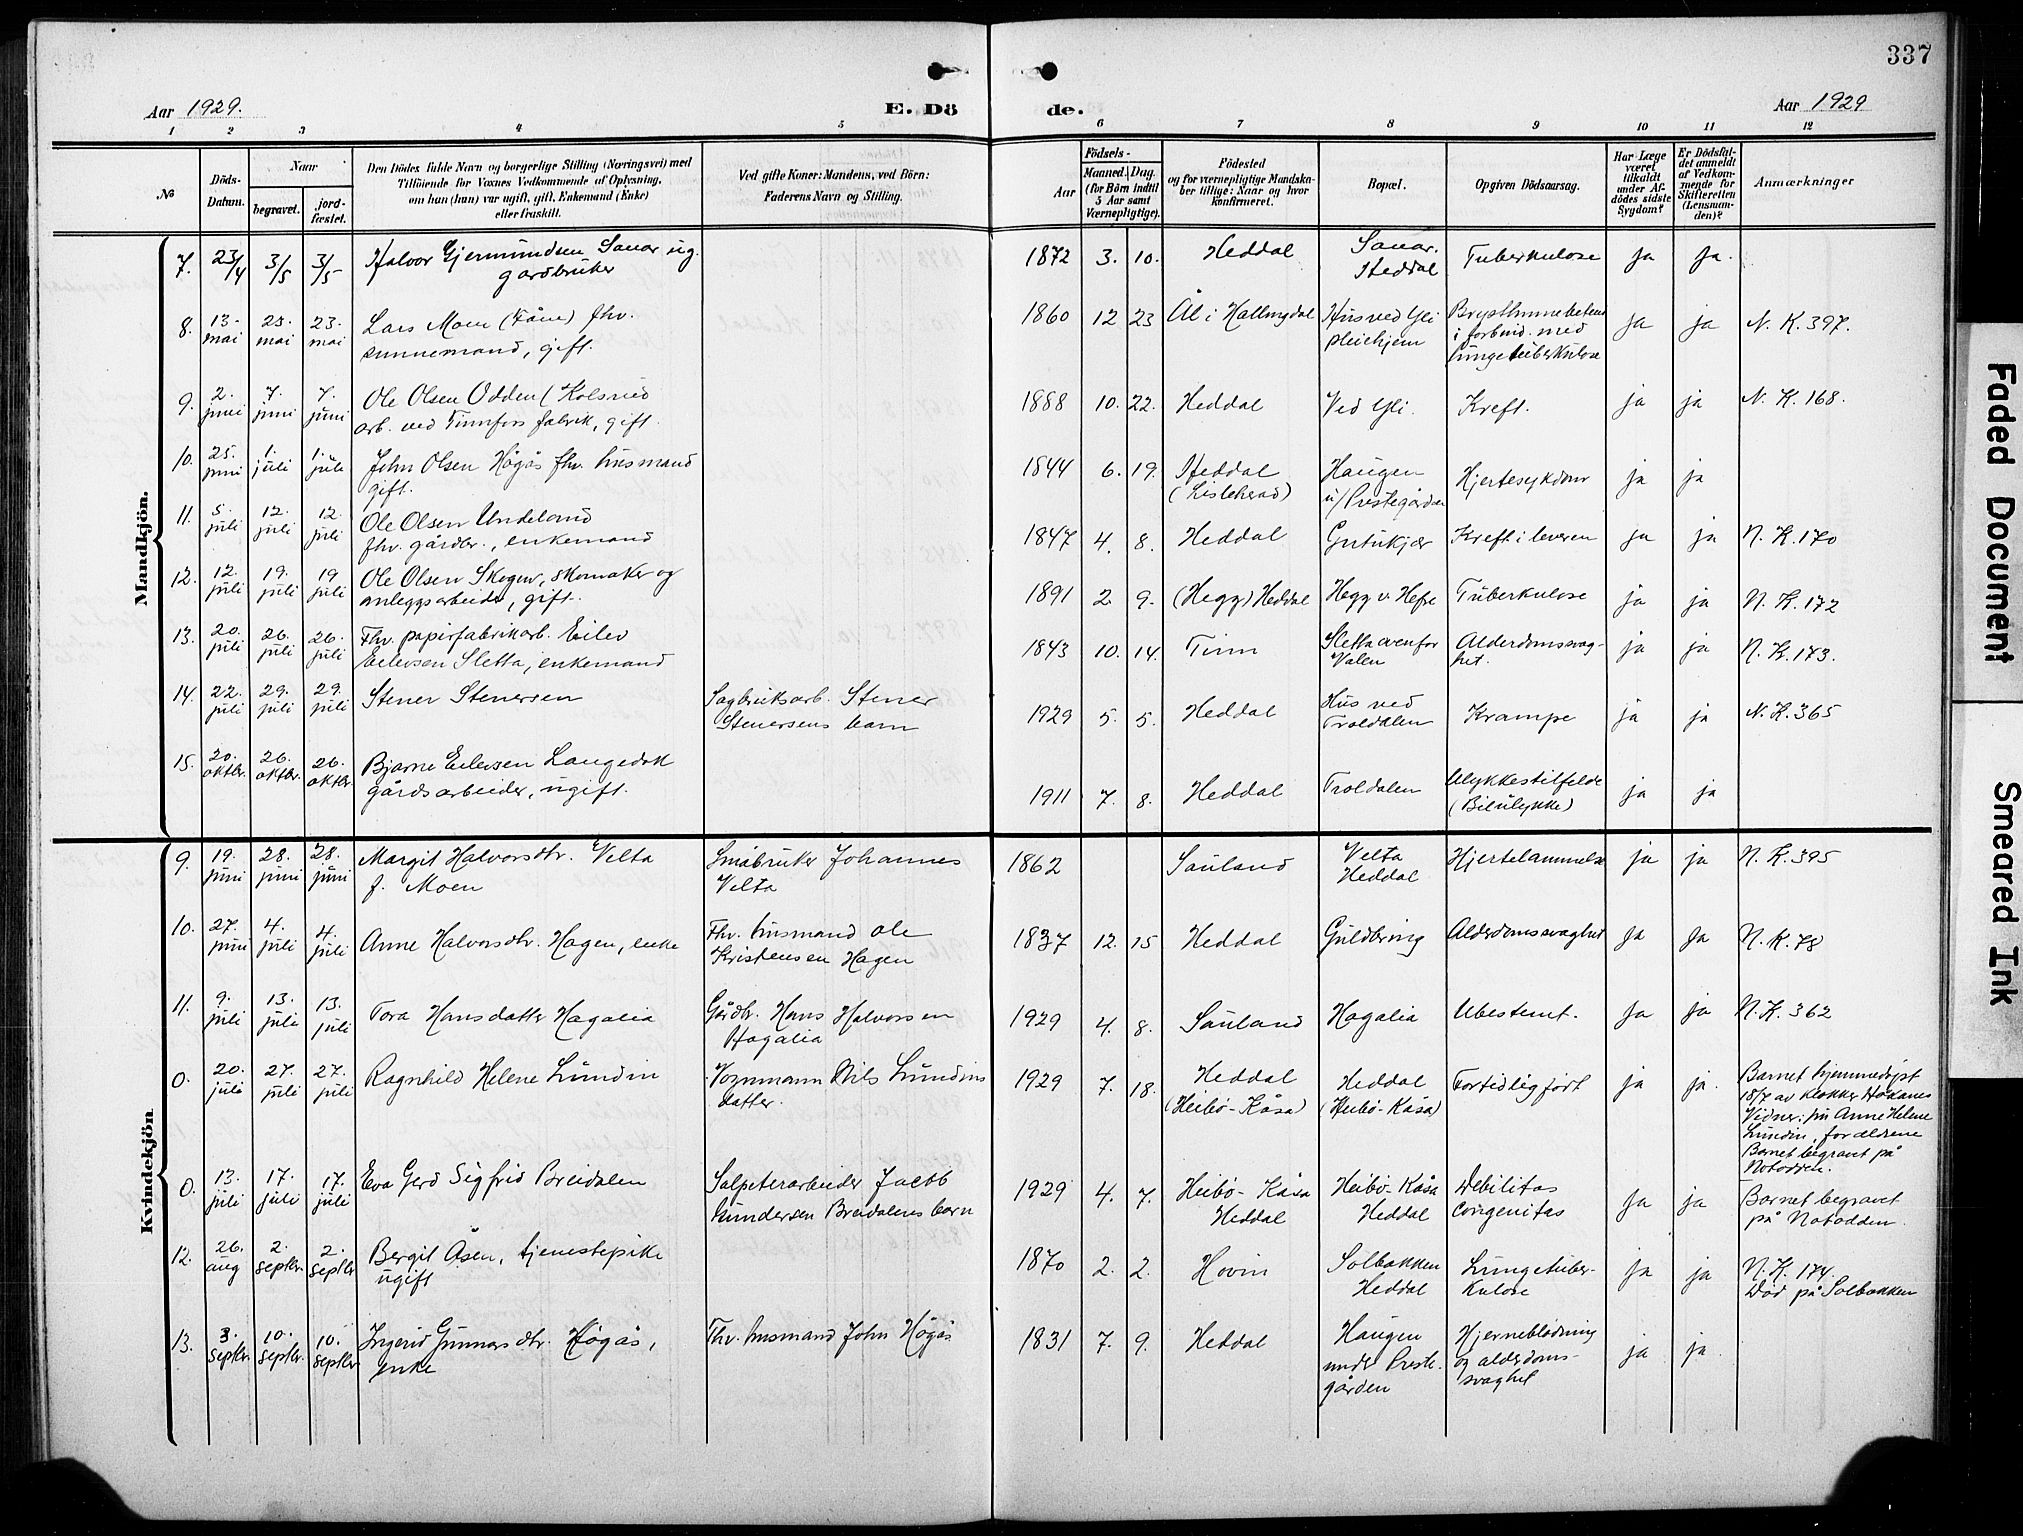 337
Aar 1929.
E. Dö
de.
Aar 1929
1 2 3 4 5 6 7 8 9 10 11 12
№
Döds-
Datum.
Naar
begravet.
jord-
fæstet.
Den Dödes fulde Navn og borgerlige Stilling (Næringsvei) med
Tilföiende for Voxnes Vedkommende af Oplysning,
om han (hun) var ugift, gift, Enkemand (Enke)
eller fraskilt.
Ved gifte Koner: Mandens, ved Börn:
Faderens Navn og Stilling.
Aar
Födsels-
Maaned. Dag.
(for Börn indtil
5 Aar samt
Værnepligtige).
Födested
og for værnepligtige Mandska-
ber tillige: Naar og hvor
konfirmeret.
Bopæl.
Opgiven Dödsaarsag.
Har Læge
været
tilkaldt
under Af-
dödes sidste
Sygdom?
Er Dödsfal-
det anmeldt
af Vedkom-
mende for
Skifteretten
(Lensman-
den)?
Anmærkninger
Mandkjön.
7. 23/4 3/5 3/5 Halvor Gjermundsen Sanar ug.
gardbruker
1872 3. 10. Heddal
Sanar.
Heddal
Tuberkulose ja ja.
8. 13. mai 23. mai 23. mai
Lars Moen (Fåne) fhv.
gift.
1860 12 23 Ål i Hallingdal
Hus ved Yli
pleiehjem
i forbind. med
lungetuberkulose
ja ja N. K. 397.
9. 2. juni 7. juni 7. juni
Ole Olsen Odden (Kolsrud
arb. ved Tinnfos fabrik, gift.
1888 10. 22. Heddal Ved Yli. Kreft. ja ja N. K. 168.
10. 25. juni 1. juli 1. juli
John Olsen Högås fhv. husmand
gift.
1844 6. 19. Heddal
(Lisleherad)
Haugen
u/Prestegården
Hjertesykdom ja ja
11. 5. juli 12. juli 12. juli
Ole Olsen Undeland
fhv. gårdbr., enkemand
1847 4. 8. Heddal Grutukjær Kreft i leveren ja ja N. K. 170
12. 12. juli 19. juli 19 juli
Ole Olsen Skogen, skomaker og
anleggsarbeider, gift.
1891 2 9. (Hegg) Heddal Hegg v. Hefre Tuberkulose ja ja N. K. 172
13. 20. juli 26. juli 26. juli
Fhv. papirfabrikarb. Eilev
Eilevsen Sletta, enkemand
1843 10. 14. Tinn
Sletta ovenfor
Valen
Alderdomssvag-
het.
ja ja N. K. 173.
14. 22. juli 29. juli 29. juli
Stener Stenersen
Sagbruksarb. Stener
Stenersens barn
1929 5. 5. Heddal
Hus ved
Troldalen
Krampe ja ja N. K. 365
15. 20. oktbr. 26. oktbr. 26. oktbr.
Bjarne Eilevsen Langedrk
gårdsarbeider, ugift.
1911 7. 8. Heddal Troldalen
Ulykkestilfelde
(Bilulykke)
ja ja
Kvindekjön
9. 19. juni 28. juni 28. juni
Margit Halvorsdtr. Velta
f. Moen
Småbruker Johannes
Velta
1862 Sauland
Velta
Heddal
Hjertelammelse ja ja N. K. 395
10. 27. juni 4. juli 4. juli
Anne Halvorsdtr. Hagen, enke
Fhv. husmand Ole
Kristensen Hagen
1837 12. 15 Heddal Guldbring Alderdomssvaghet ja ja N. K. 78
11. 9. juli 13. juli 13. juli
Tora Hansdatter Hagalia
Gårdbr. Hans Halvorsen
Hagalia
1929 4. 8. Sauland Hagalia Ubestemt. ja ja N. K. 362
0. 20. juli 27. juli 27. juli
Ragnhild Helene Lundin
Vognmann Nils Lundins
datter.
1929 7. 18. Heddal
(Heibö-Kåsa)
Heddal
(Heibö-Kåsa)
Fortidlig født ja ja.
Barnet hjemmedøpt
18/7 av klokker Håkanes
Vidner: fru Anne Helene
Lundin, forældrene
Barnet begravt på
Notodden.
0. 13. juli 17. juli 17. juli
Eva Gerd Sigfrid Breidalen
Salpeterarbeider Jacob
Gundersen Breidalens barn
1929 4. 7. Heibö-Kåsa
Heddal
Heibö-Kåsa
Heddal
Debilitas
congenitas
ja ja
Barnet begravet
på Notodden.
12. 26. aug 2. septbr. 2. septbr
Bergit Åsen, tjenestepike
ugift
1870 2. 2. Hovin
Solbakken
Heddal
Lungetuber-
kulose
ja ja
N. K. 174.
Død på Solbakken
13. 3. septbr. 10. septbr. 10. septbr
Ingerid Gunnarsdtr. Högås,
enke
Fhv. husmand John Högås
1831 7. 9. Heddal
Haugen
under Preste-
gården
Hjerneblødning
og alderdoms-
svaghet
ja ja.
Faded Document
Smeared Ink